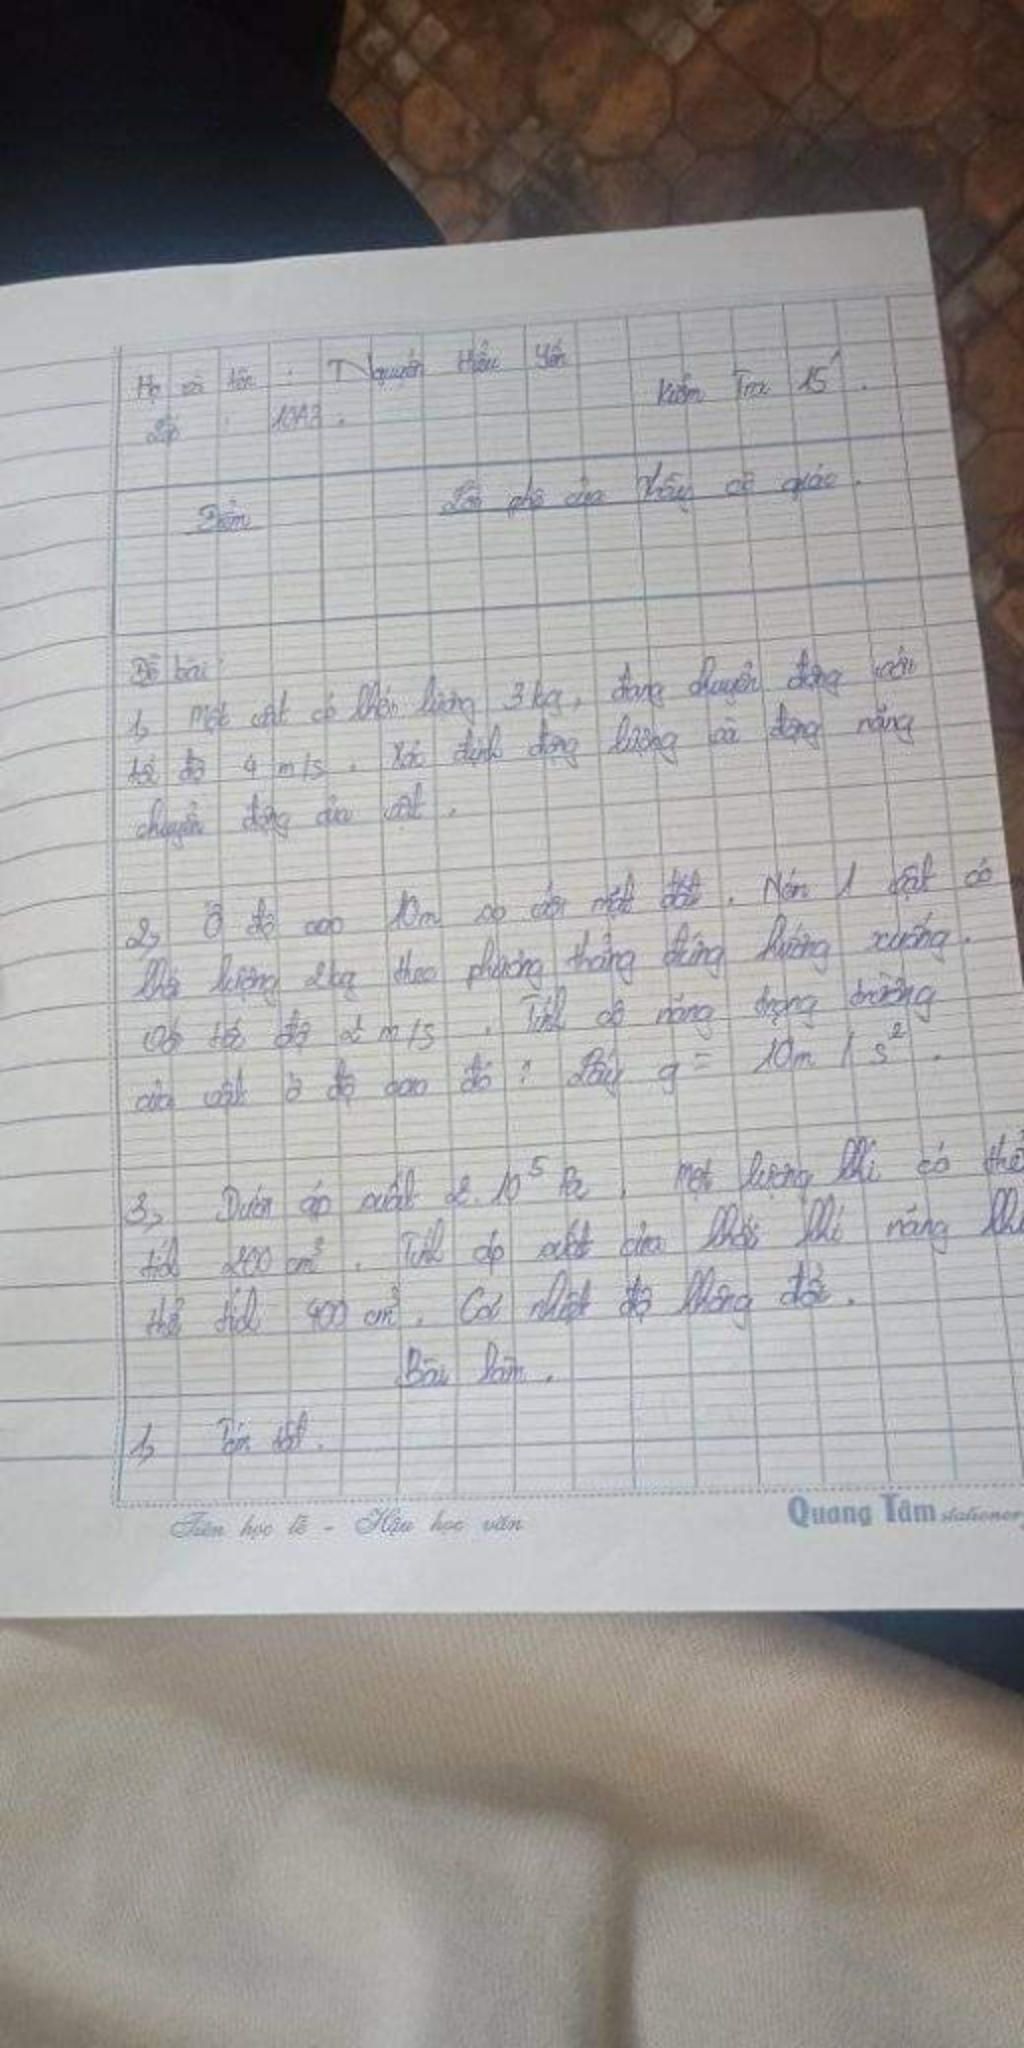 Họ và tên : Nguyễn Hiểu Yến
Kiểm Tra 15'.
Lớp : 10A3.
Điểm
Lời phê của thầy cô giáo.
Đề bài:
1, Một vật có khối lượng 3kg, đang chuyển động với
tốc độ 4 m/s. Xác định động lượng và động năng
chuyển động của vật.
2, Ở độ cao 10m so với mặt đất. Ném 1 vật có
khối lượng 2kg theo phương thẳng đứng hướng xuống.
với tốc độ 2 m/s. Tính cơ năng trọng trường
của vật ở độ cao đó? Lấy g = 10m/s².
3, Dưới áp suất 2.10⁵ Pa, một lượng khí có thể
tích 200 cm³. Tính áp suất của khối khí này khi
thể tích 400 cm³. Coi nhiệt độ không đổi.
Bài làm.
1, Tóm tắt.
Tiên học lễ - Hậu học văn
Quang Tâm stationery